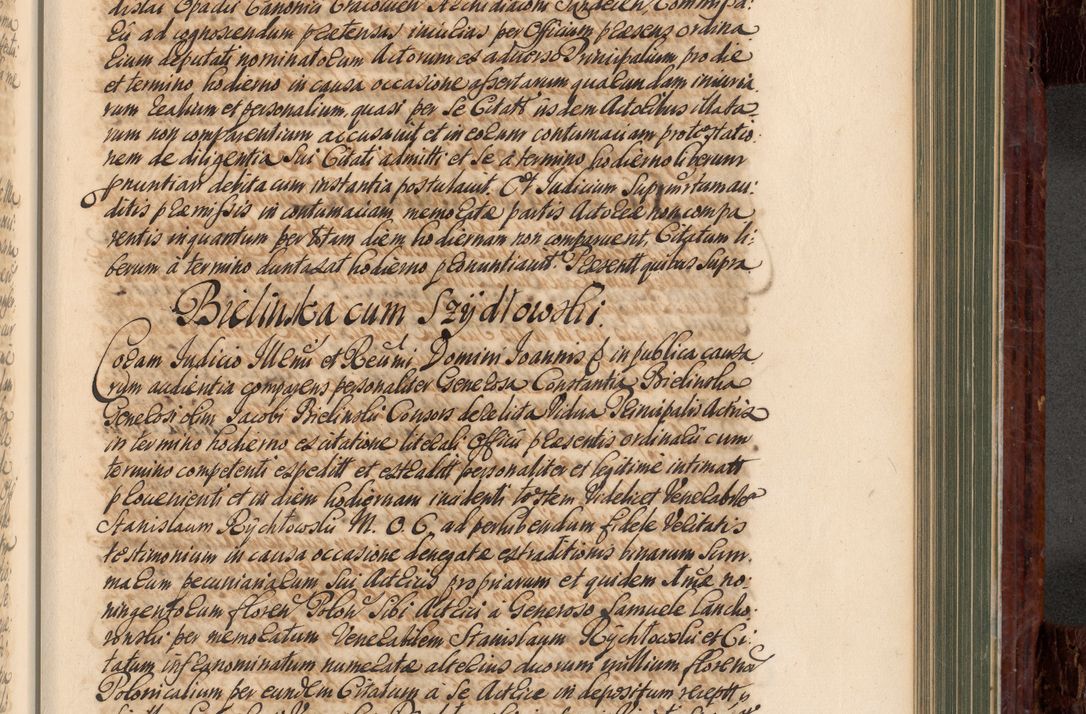 dislai Opacii Canonici Cracovien Archidiaconi Sandecen Commissa:
rii ad cognoscendum praetensas iniurias per Officium praesens ordina:
rium deputati nominatorum Actorum ex adverso Principalium pro die
et termino hodierno in causa occasione assertarum quarundam iniuria:
rum realium et personalium, quasi per se Citatt iisdem Actoribus illata:
rum non comparentium accusavit et in eorum contumaciam protestatio:
nem de diligentia sui Citati admitti et se a termino hodierno liberum
pnuntiari debita cum instantia postulavit. Et Judicium Supmmtum au:
ditis praemissis in contumaciam memoratae partis Actoreae non compa
rentis inquantum per totam diem hodiernam non comparuerit, Citatum li:
berum a termino duntaxat hodierno pronuntiavit. Praesentt quibus supra
Bielinska cum Szydłowski.
Coram Judicio Illmi et Reumi Domini Joannis E in publica causa
rum audientia comparens personaliter Generosa Constantia Bielinska
Generosi olim Jacobi Bielinski Consors derelicta Vidua Principalis Actrix
in termino hodierno ex citatione literali Officii praesentis ordinarii cum
termino competenti expeditt et extraditt personaliter et legitime intimatt
provenienti et in diem hodiernam incidenti testem videlicet Venerabilem
Stanislaum Rychłowski M. O. C. ad perhibendum fidele veritatis
testimonium in causa occasione denegatae extraditionis binarum Sum:
marum pecuniariarum sui Actricis propriarum et quidem unae no:
ningentorum floren Polon Sibi Actrici a Generoso Samuele Lancko:
ronski per memoratum Venerabilem Stanislaum Rychłowski et Ci:
tatum infranominatum numeratae alterius duorum millium florenor
Polonicalium per eundem Citatum a se Actrice in depositum receptt